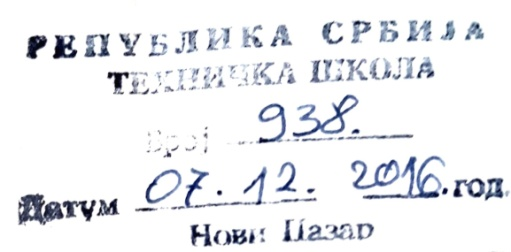 РЕПУБЛИКА СРБИЈА
ТЕХНИЧКА ШКОЛА
Број 938.
Датум 07. 12. 2016. год.
Нови Пазар